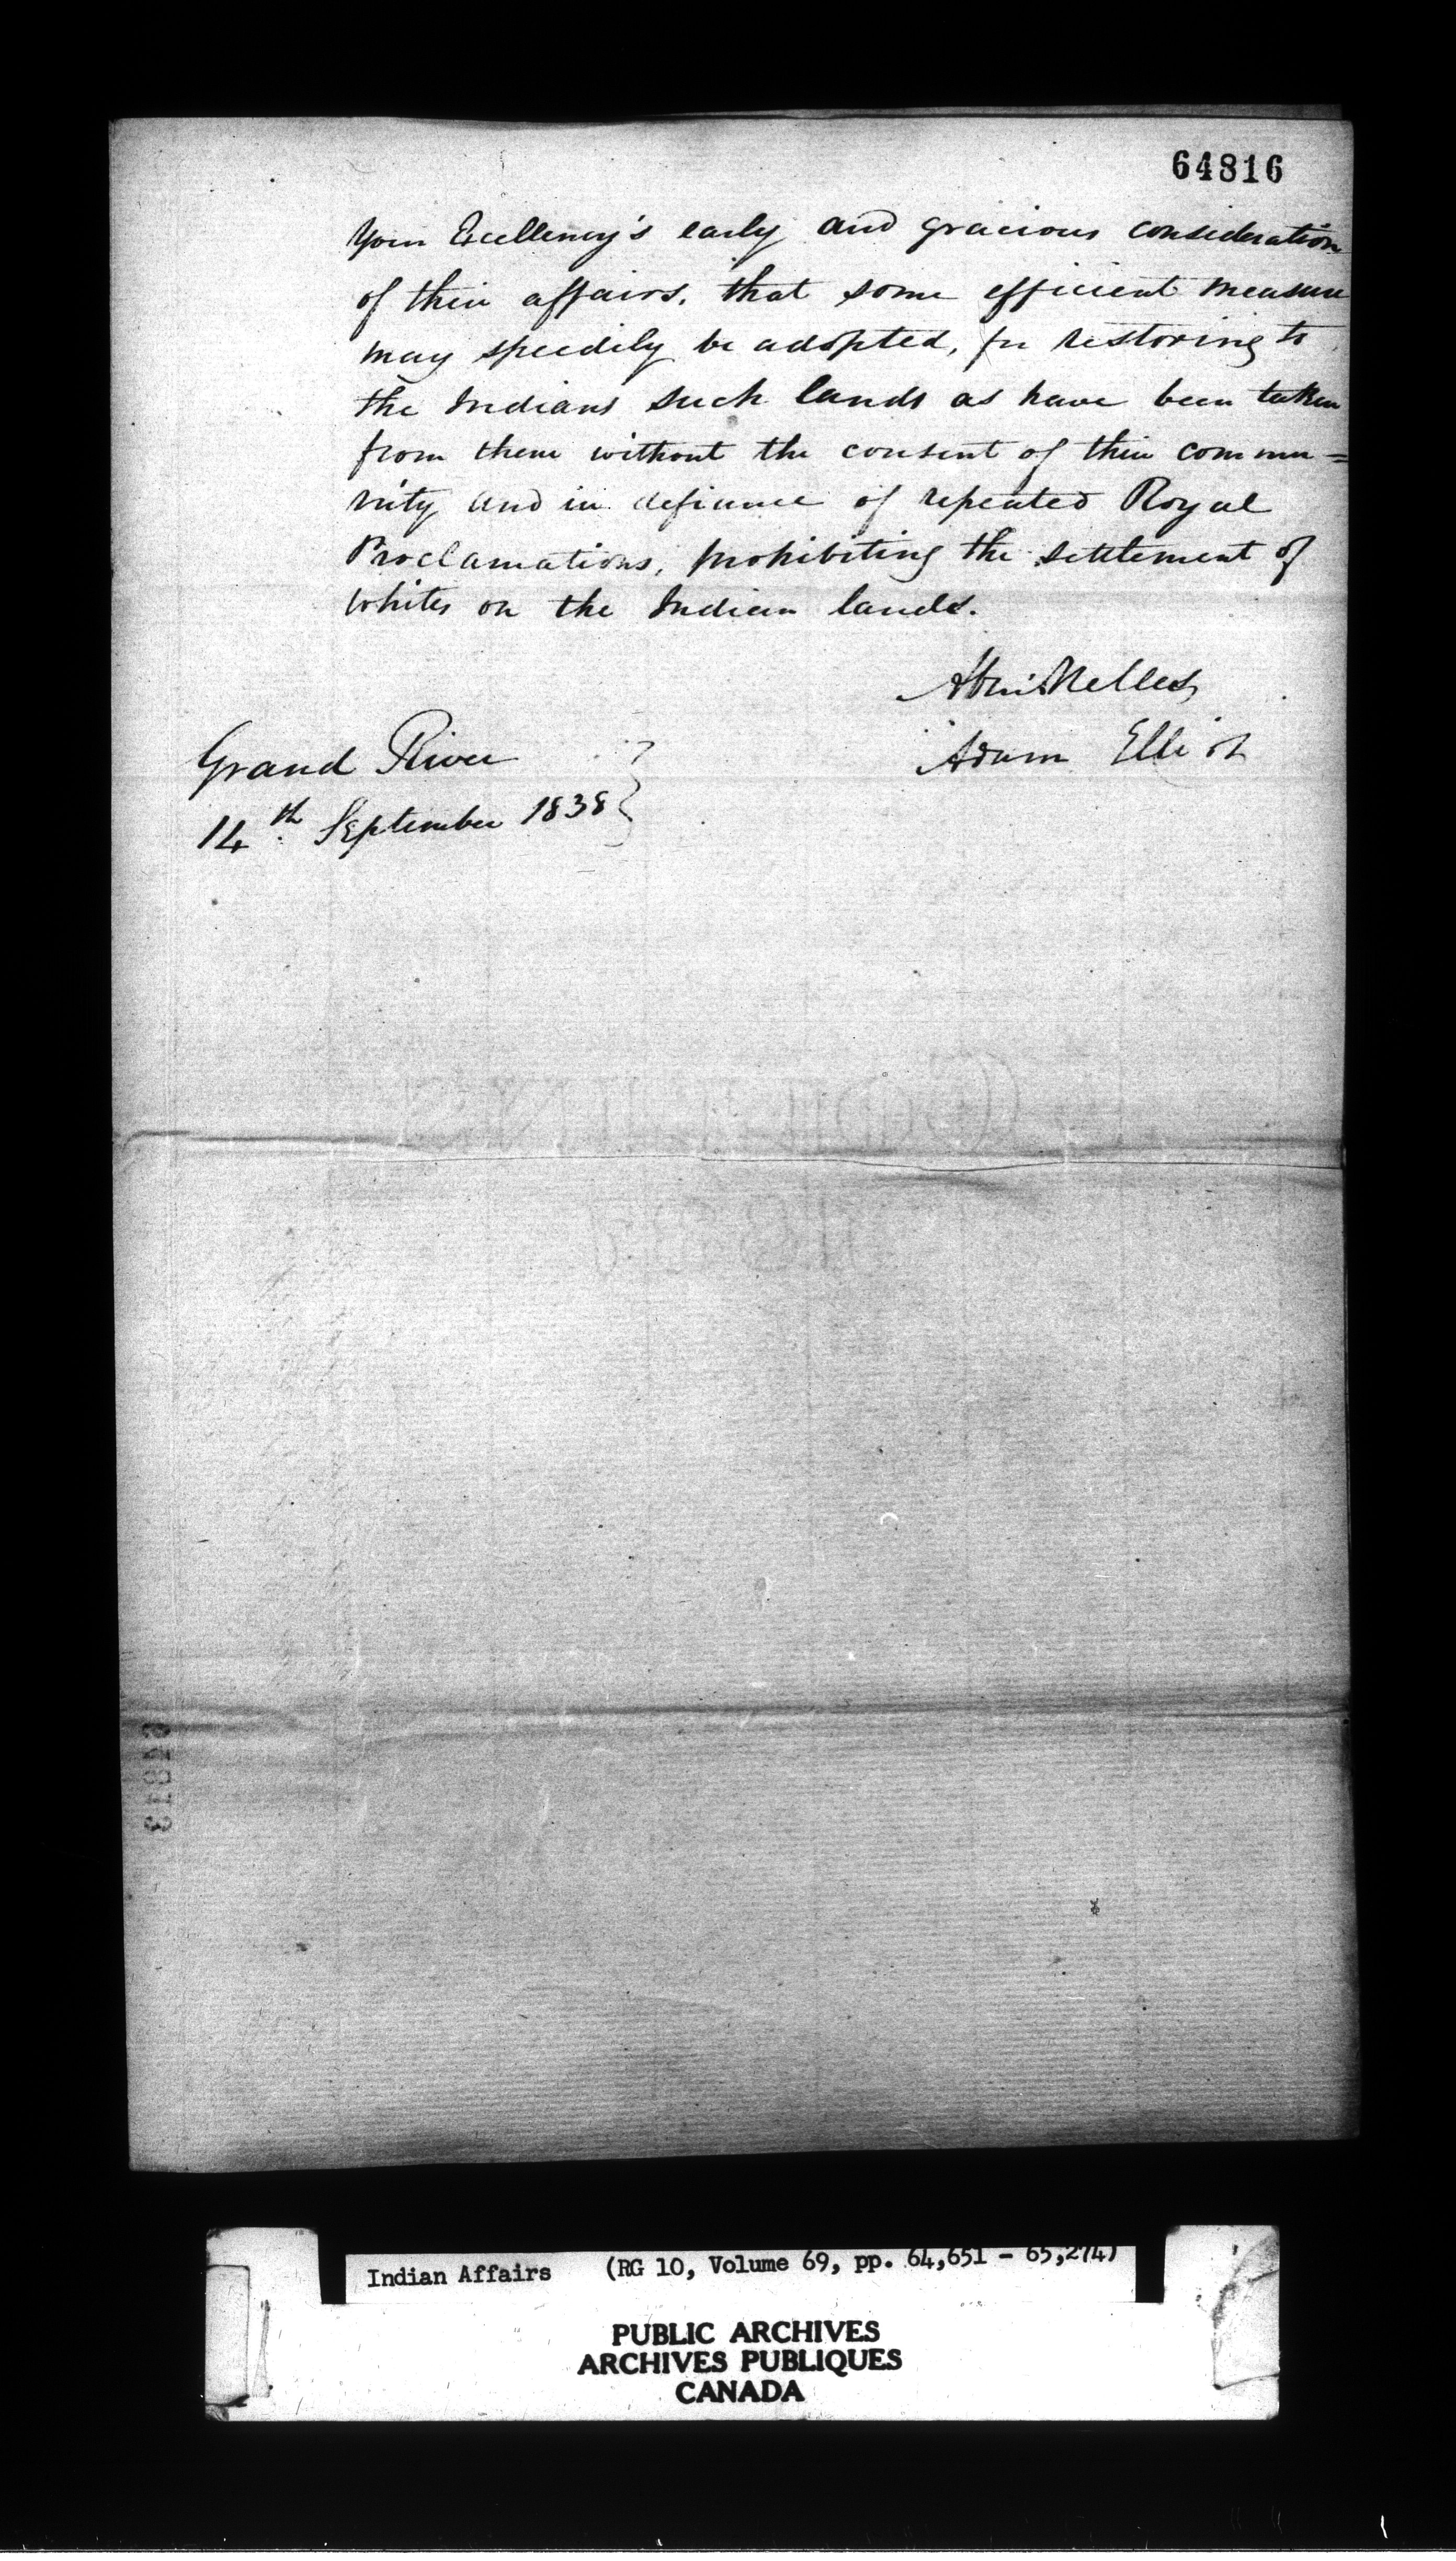 64816
Your Excellency's early and gracious consideration
of their affairs, that some efficient measure
may speedily be adopted, for restoring to
the Indians such lands as have been taken
from them without the consent of their commu=
nity and in defiance of repeated Royal
Proclamations, prohibiting the settlement of
Whites on the Indian lands.
Abm Nelles
Adam Elliot
Grand River
14th September 1838
Indian Affairs (RG 10, Volume 69, pp. 64,651 - 65,274)
PUBLIC ARCHIVES
ARCHIVES PUBLIQUES
CANADA